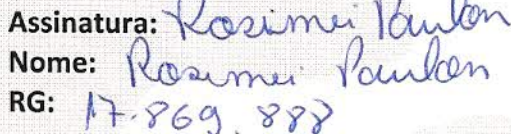 Assinatura: Rosimei Paulon
Nome: Rosimei Paulon
RG: 17.869.888